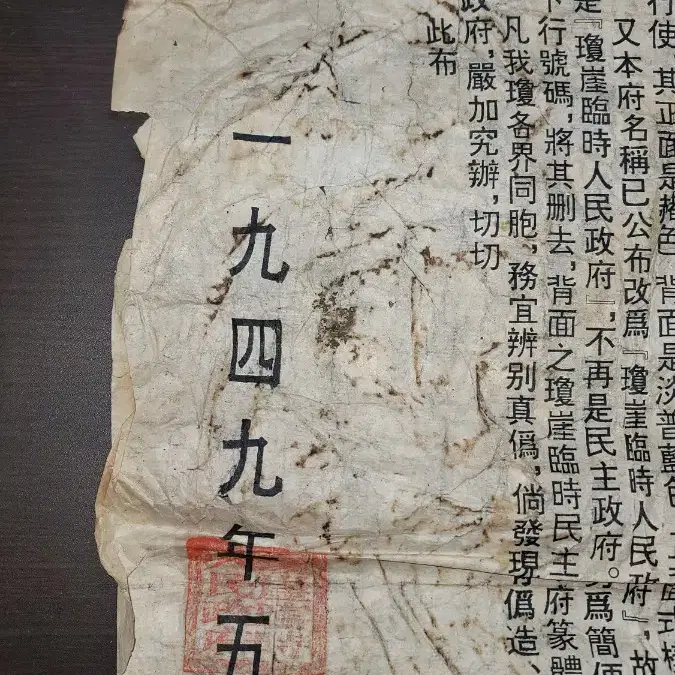 行使,其正面是赭色 背面是淡普藍色 式樣
又本府名稱已公布改爲『瓊崖臨時人民政府』,故
是『瓊崖臨時人民政府』,不再是民主政府。爲簡便
下行號碼,將其删去,背面之瓊崖臨時民主府篆體
凡我瓊各界同胞、務宜辨别真僞,倘發現僞造、
政府,嚴加究辦,切切
此布
一九四九年五